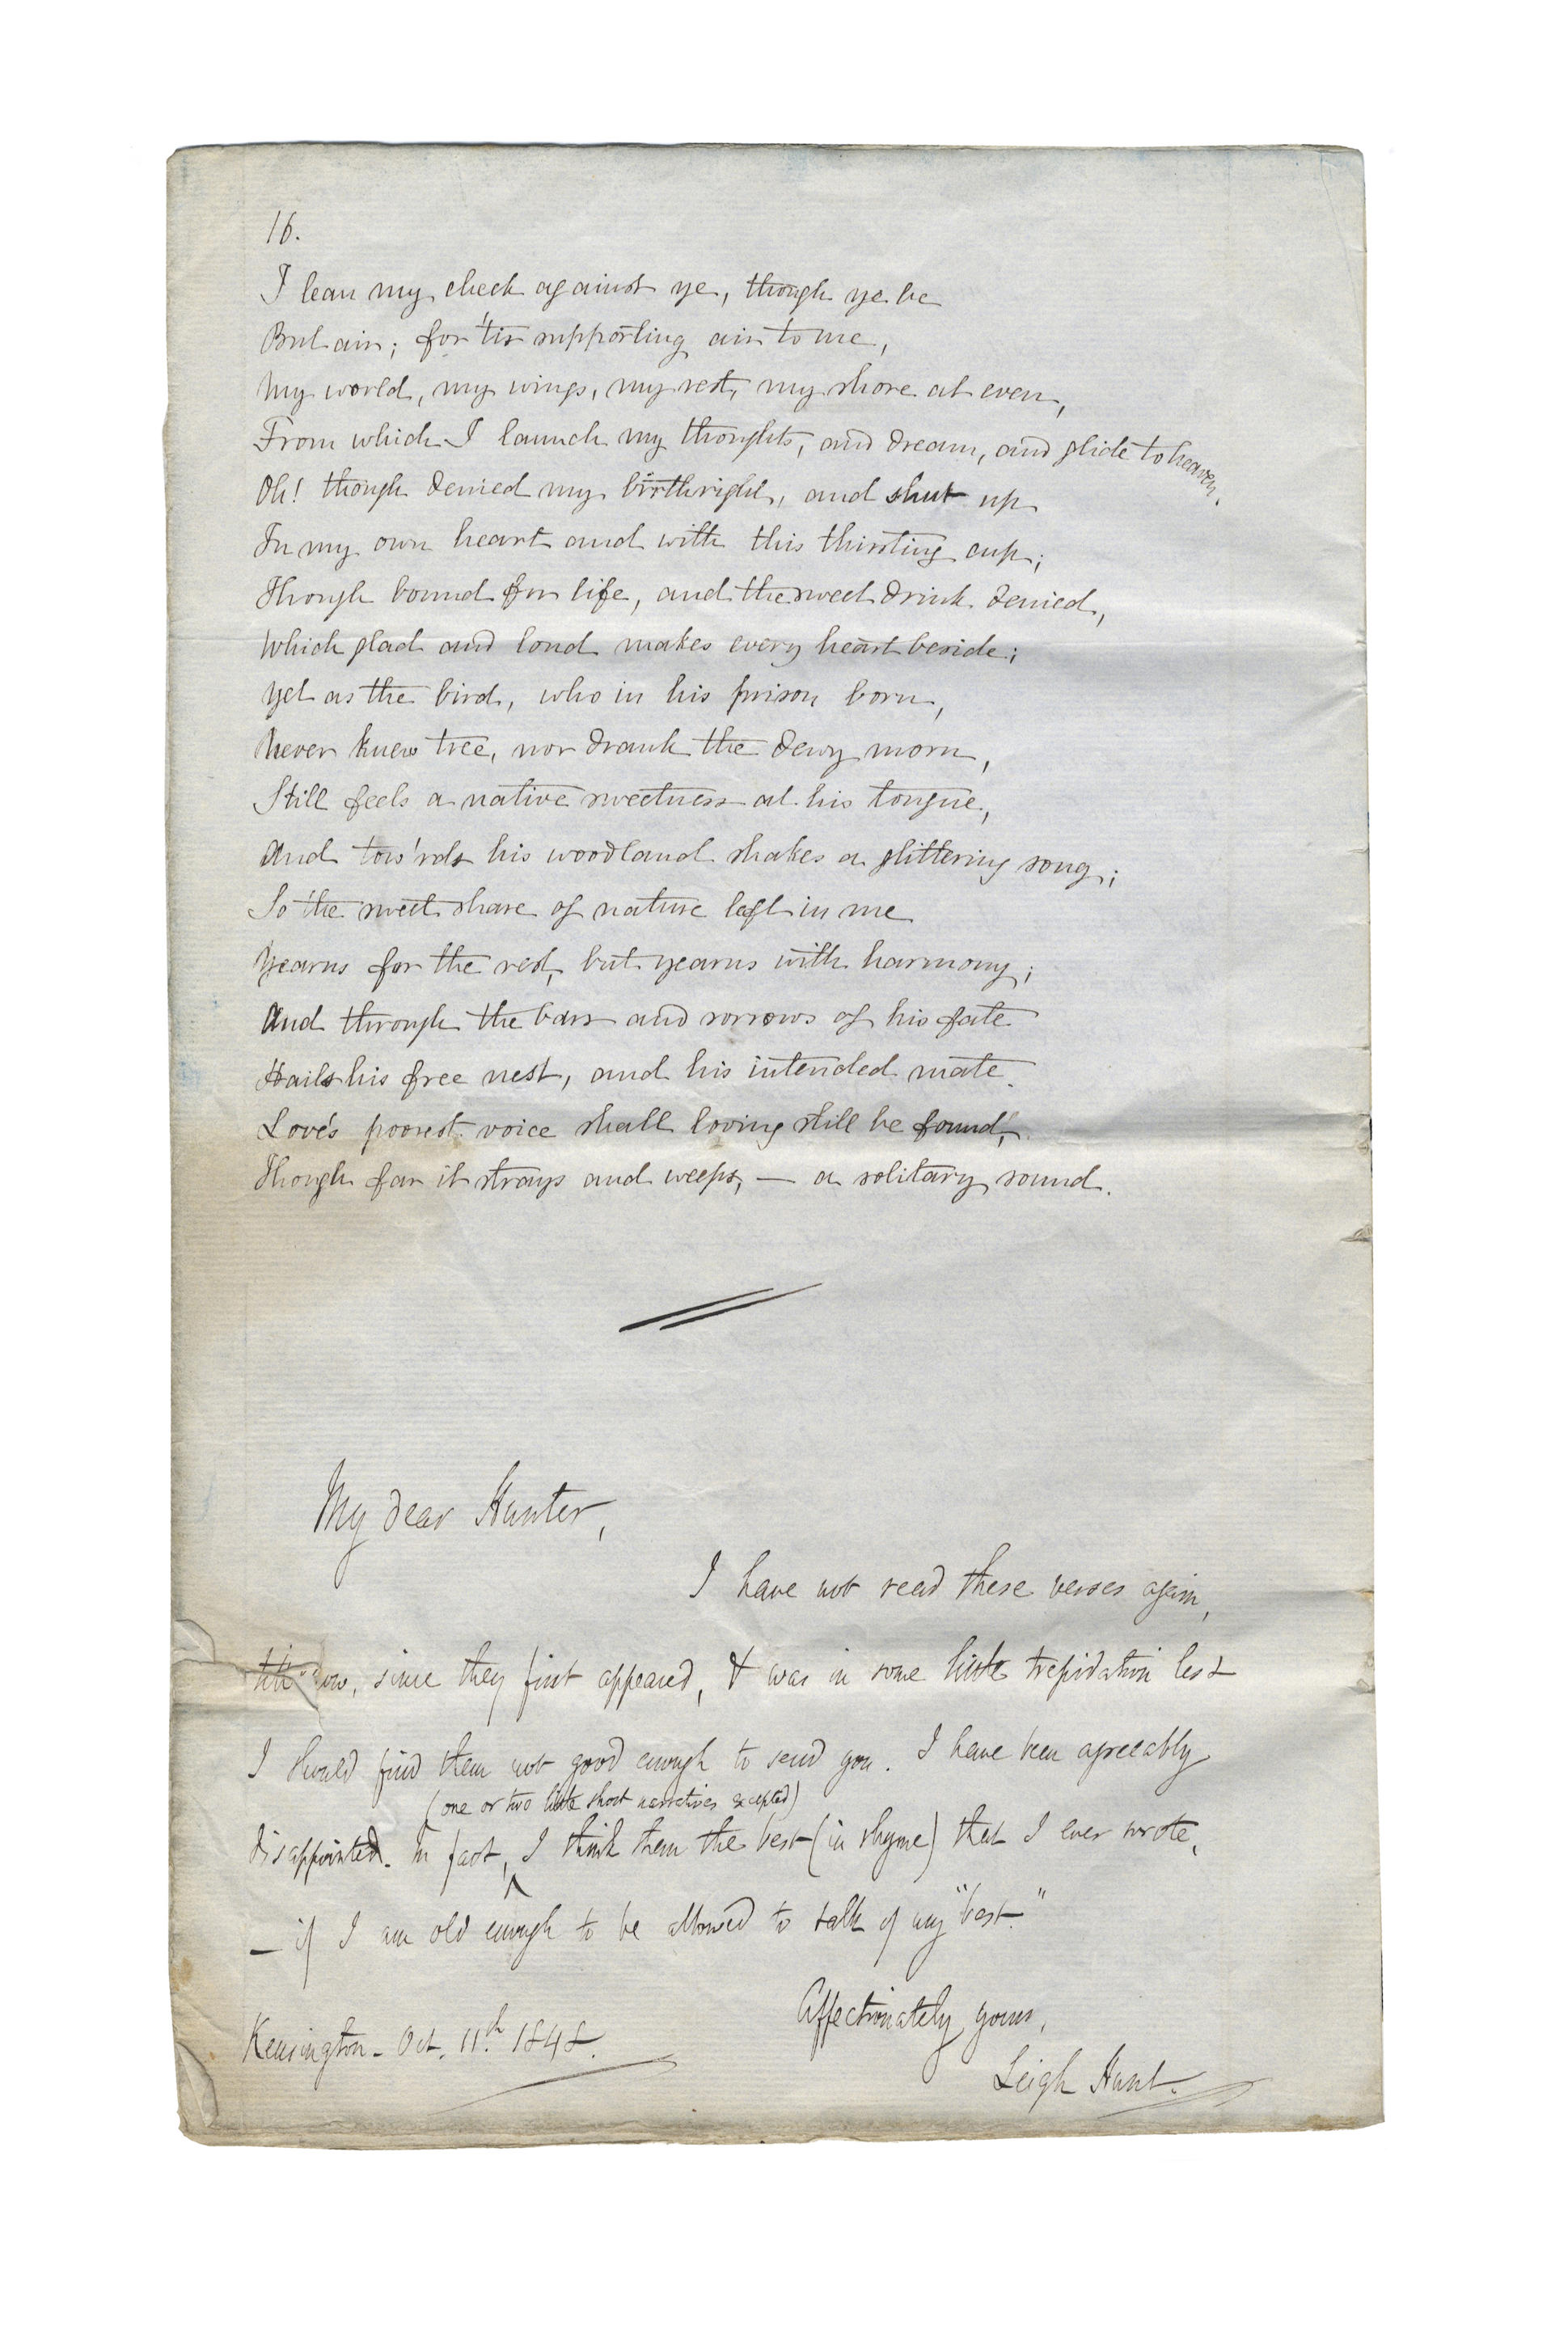 16.
I lean my cheek against ye, though ye be
But air; for 'tis supporting air to me,
My world, my wings, my rest, my shore at even,
From which I launch my thoughts, and dream, and glide to heaven.
Oh! though denied my birthright, and shut up
In my own heart and with this thirsting cup;
Though bound for life, and the sweet drink denied,
Which glad and loud makes every heart beside;
Yet as the bird, who in his prison born,
Never knew tree, nor drank the dewy morn,
Still feels a native sweetness at his tongue,
And tow'rds his woodland shakes a glittering song;
So the sweet share of nature left in me
Yearns for the rest, but yearns with harmony;
And through the bars and sorrows of his fate
Hails his free nest, and his intended mate.
Love's poorest voice shall loving still be found,
Though far it strays and weeps, — a solitary sound.
My dear Hunter,
I have not read these verses again,
till now, since they first appeared, & was in some little trepidation lest
I should find them not good enough to send you. I have been agreeably
(one or two little short narratives excepted)
disappointed. In fact, I think them the best (in rhyme) that I ever wrote,
— if I am old enough to be allowed to talk of my "best."
Affectionately yours,
Kensington - Oct. 11th. 1848.
Leigh Hunt.